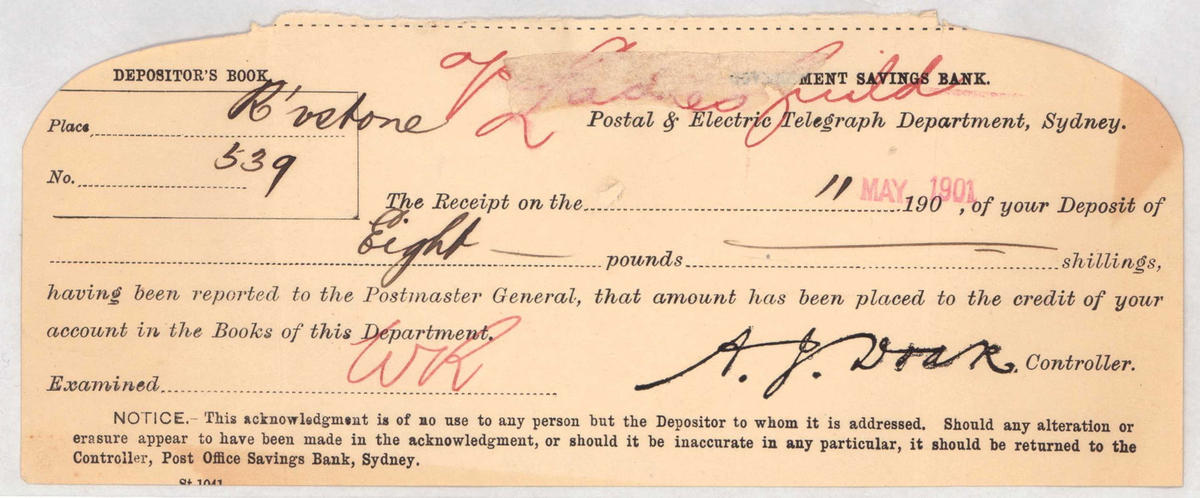 DEPOSITOR'S BOOK
MENT SAVINGS BANK.
of Ladies Guild
Place R'vstone
Postal & Electric Telegraph Department, Sydney.
No. 539
The Receipt on the 11 MAY 1901 190 , of your Deposit of
Eight — pounds — shillings,
having been reported to the Postmaster General, that amount has been placed to the credit of your
account in the Books of this Department.
WR
A. J. Doak, Controller.
Examined
NOTICE.- This acknowledgment is of no use to any person but the Depositor to whom it is addressed. Should any alteration or
erasure appear to have been made in the acknowledgment, or should it be inaccurate in any particular, it should be returned to the
Controller, Post Office Savings Bank, Sydney.
St 1041